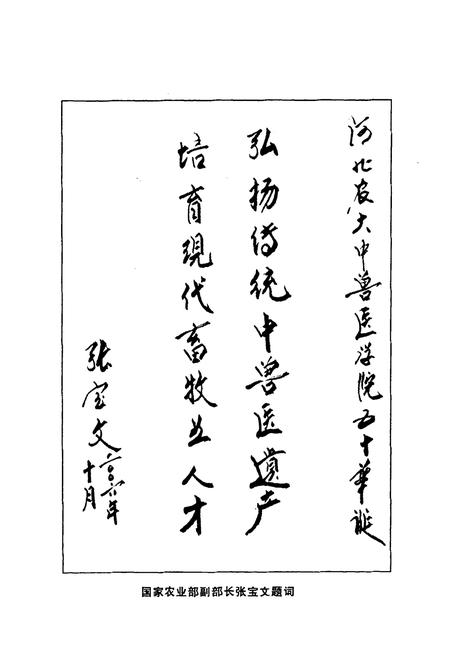 河北农大中兽医学院五十华诞
弘扬传统中兽医遗产
培育现代畜牧业人才
张宝文
十月
国家农业部副部长张宝文题词